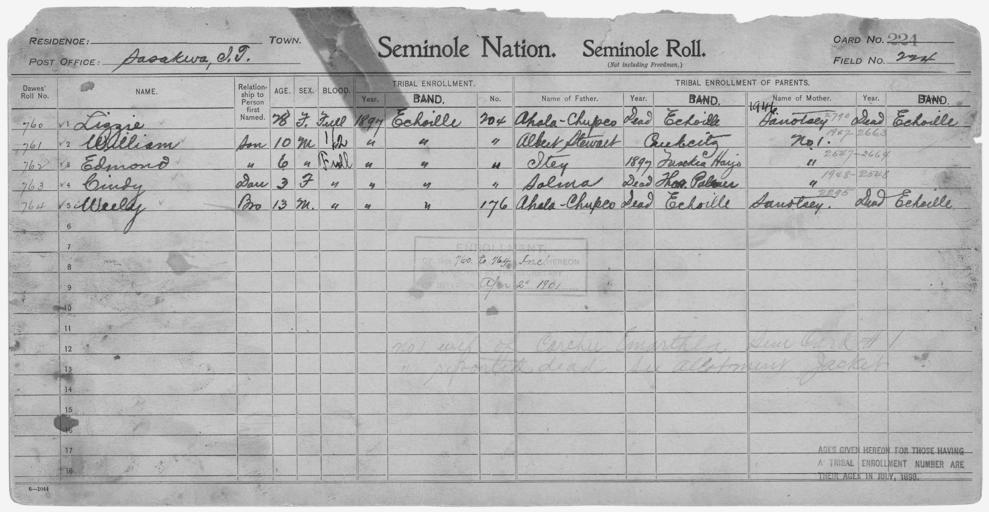 RESIDENCE: TOWN.
POST OFFICE: Sasakwa, I.T.
Seminole Nation. Seminole Roll.
(Not including Freedmen.)
CARD No. 224
FIELD No. 224
Dawes' Roll No. NAME. Relationship to Person first Named. AGE. SEX. BLOOD. TRIBAL ENROLLMENT. Year. BAND. No. TRIBAL ENROLLMENT OF PARENTS. Name of Father. Year. BAND. Name of Mother. Year. BAND.
760 1 Lizzie 28 F. Full 1897 Echoille 204 Ahola-Chupco Dead Echoille 1946 Sanotsey 2790 Dead Echoille
761 2 William Son 10 M 1/2 " " " Albert Stewart No 1. 1947-2663
762 3 Edmond " 6 " Full " " " Itey 1897 Tuseka Harjo " 2547-2664
763 4 Cindy Dau 3 F " " " " Solma Dead Thos. Palmer " 1948-2548
764 5 Weely Bro 13 M. " " " 176 Ahola-Chupco Dead Echoille Sanotsey. 2895 Dead Echoille
6
7 ENROLLMENT
8 760 to 764 Inc HEREON
9 Apr 2" 1901
10
11
12 No 1 wife of Emarthla Sem Card # 1
13 " reported dead See allotment Jacket
14
15
16
17
18
AGES GIVEN HEREON FOR THOSE HAVING
A TRIBAL ENROLLMENT NUMBER ARE
THEIR AGES IN JULY, 1898.
6-2044